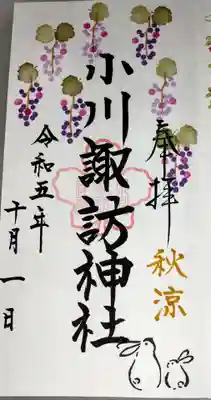 奉拝
秋涼
小川諏訪神社
令和五年
十月一日